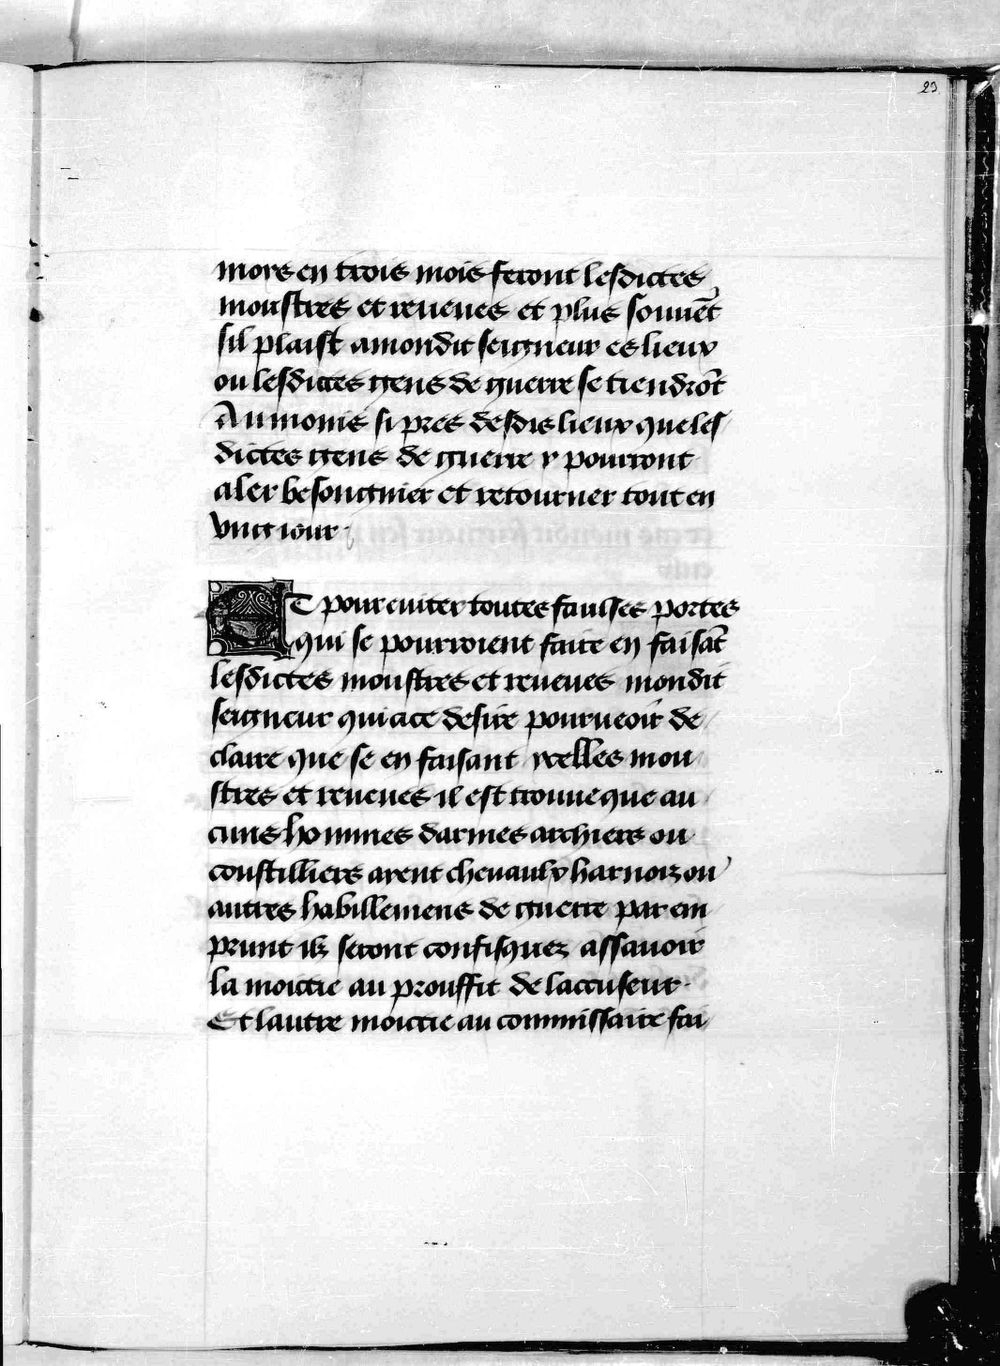 23
mois en trois mois feront lesdictes
monstres et reueues et plus souuēt
sil plaist a mondit seigneur es lieux
ou lesdictes gens de guerre se tiendrōt
Au moins si pres desdis lieux que les
dictes gens de guerre y pourront
aler besongnier et retourner tout en
vng iour
Et pour euiter toutes faulses portes
qui se pourroient faire en faisāt
lesdictes monstres et reueues mondit
seigneur qui a ce desire pourueoir de
claire que se en faisant ycelles mon
stres et reueues il est trouue que au
cuns hommes darmes archiers ou
coustilliers ayent cheuaulx harnoiz ou
autres habillemens de guerre par em
prunt ilz seront confisquez assauoir
la moictie au prouffit de laccuseur
Et lautre moictie au commissaire fai